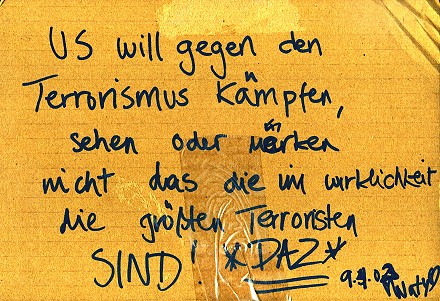 US will gegen den
Terrorismus kämpfen,
sehen oder märken
nicht das die im wirklichkeit
die größten Terroristen
SIND! *DAZ*